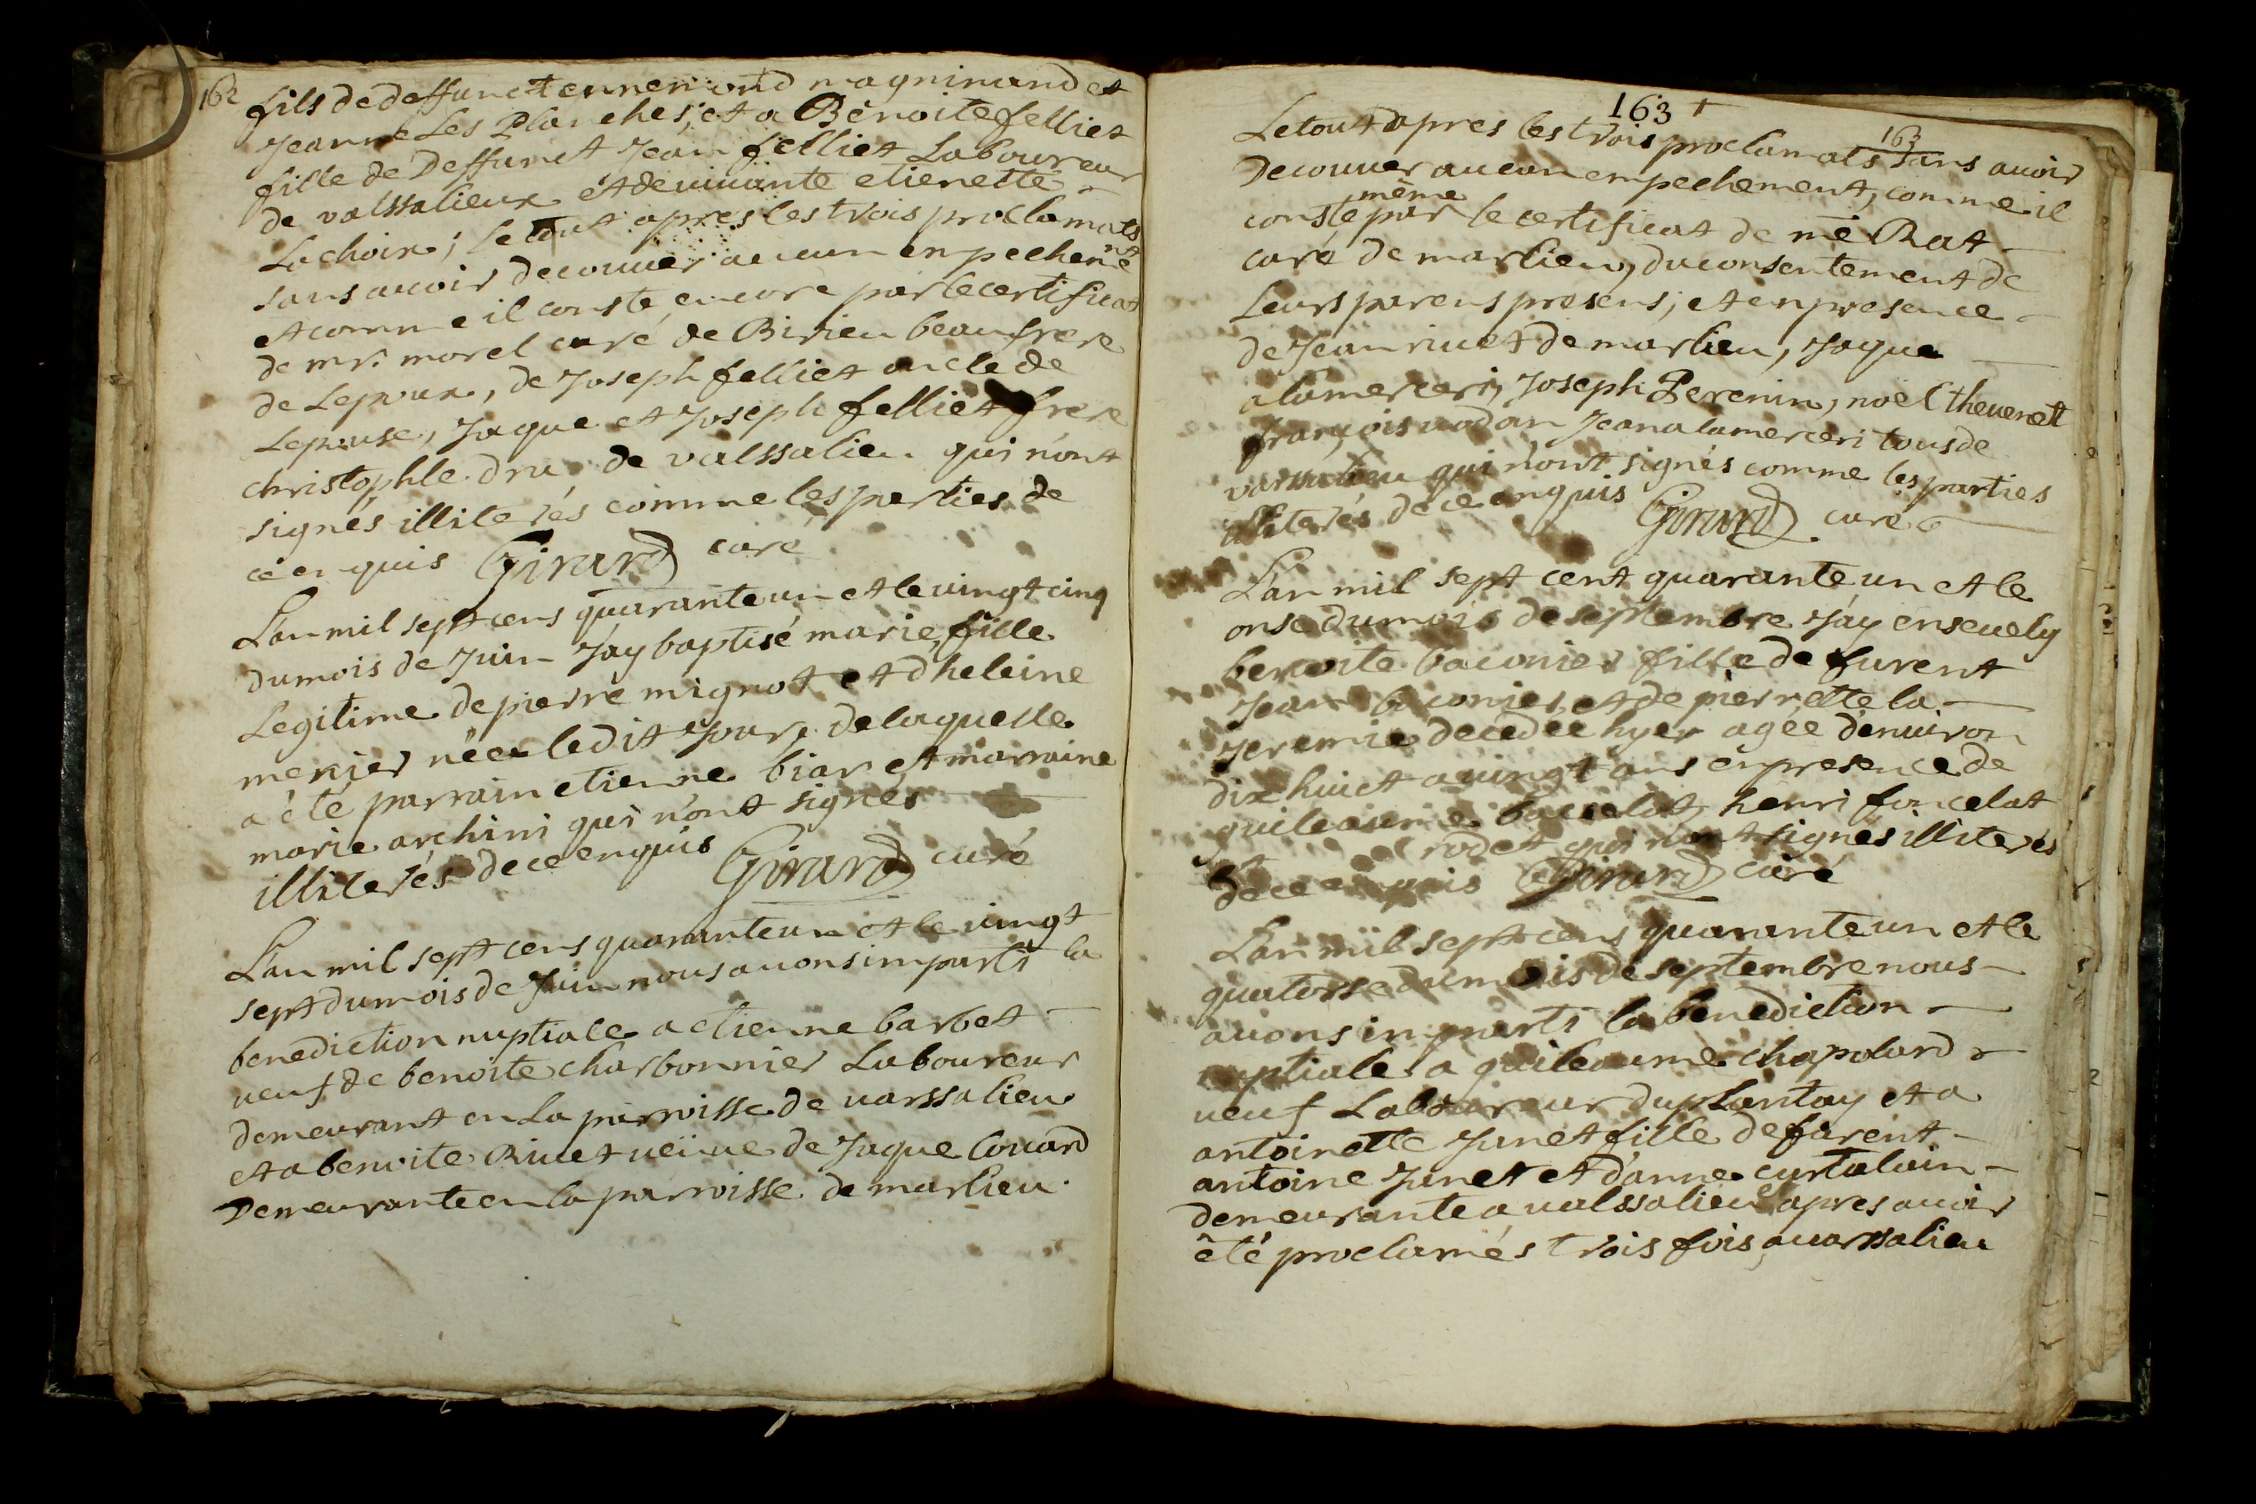 162
fils de deffunct ennemond magninand et
Jeanne Les Planches; et a Benoite felliet
fille de Deffunct Jean felliet Laboureur
de valssalieux et de vivante etienette
Lachoix; le tout apres les trois proclamats
sans avoir decouver aucun enpechemt
et comme il conste encore par le certificat
de mr. morel curé de Birieu beaufrere
de Lepoux, de Joseph felliet oncle de
Lepouse, Jaque et Joseph felliet frere
christophle dru, de valssalieu qui n'ont
signés illiterés comme les parties de
ce enquis Girard curé
L'an mil sept cens quarante un et le vingt cinq
du mois de Juin J'ay baptisé marie, fille
Legitime de pierre mignot et d'heleine
mercier née le dit Jour, de laquelle
a été parrain etienne biar et marraine
marie archini qui n'ont signés
illiterés de ce enquis Girard curé
L'an mil sept cens quarante un et le vingt
sept du mois de Juin nous avons imparti la
benediction nuptiale a etienne barbet
veuf de benoite charbonnier Laboureur
demeurant en La parroisse de varssalieu
et a benoite Rivet veuve de Jaque Couard
Demeurante en la parroisse de marlieu.
163 +
163
Le tout apres les trois proclamats sans avoir
Decouver aucun enpechement, comme il
conste même par le certificat de me Rat
curé de marlieu, du consentement de
Leurs parens presens; et en presence
de Jean rivet de marlieu, Jaque
alamerceri, Joseph Perenin, noël thevenet
françois nodan Jean alamerceri tous de
varssalieu qui n'ont signés comme les parties
illiterés de ce enquis Girard curé
L'an mil sept cent quarante un et le
onse du mois de septembre J'ay ensevely
benoite baconier fille de furent
Jean baconier et de pierrette la
Jeremie decedée hyer agée d'environ
dix huict a vingt ans en presence de
guileaume bacelot, henri foncelat
rodet qui n'ont signés illiterés
de ce enquis Girard curé
L'an mil sept cens quarante un et le
quatorse du mois de septembre nous
avons imparti la benediction
nuptiale a guileaume chapolard
veuf Laboureur du plantay et a
antoinette Junet fille de furent
antoine Junet et d'anne curtalain
demeurante a valssalieu apres avoir
êté proclamés trois fois a varssalieu